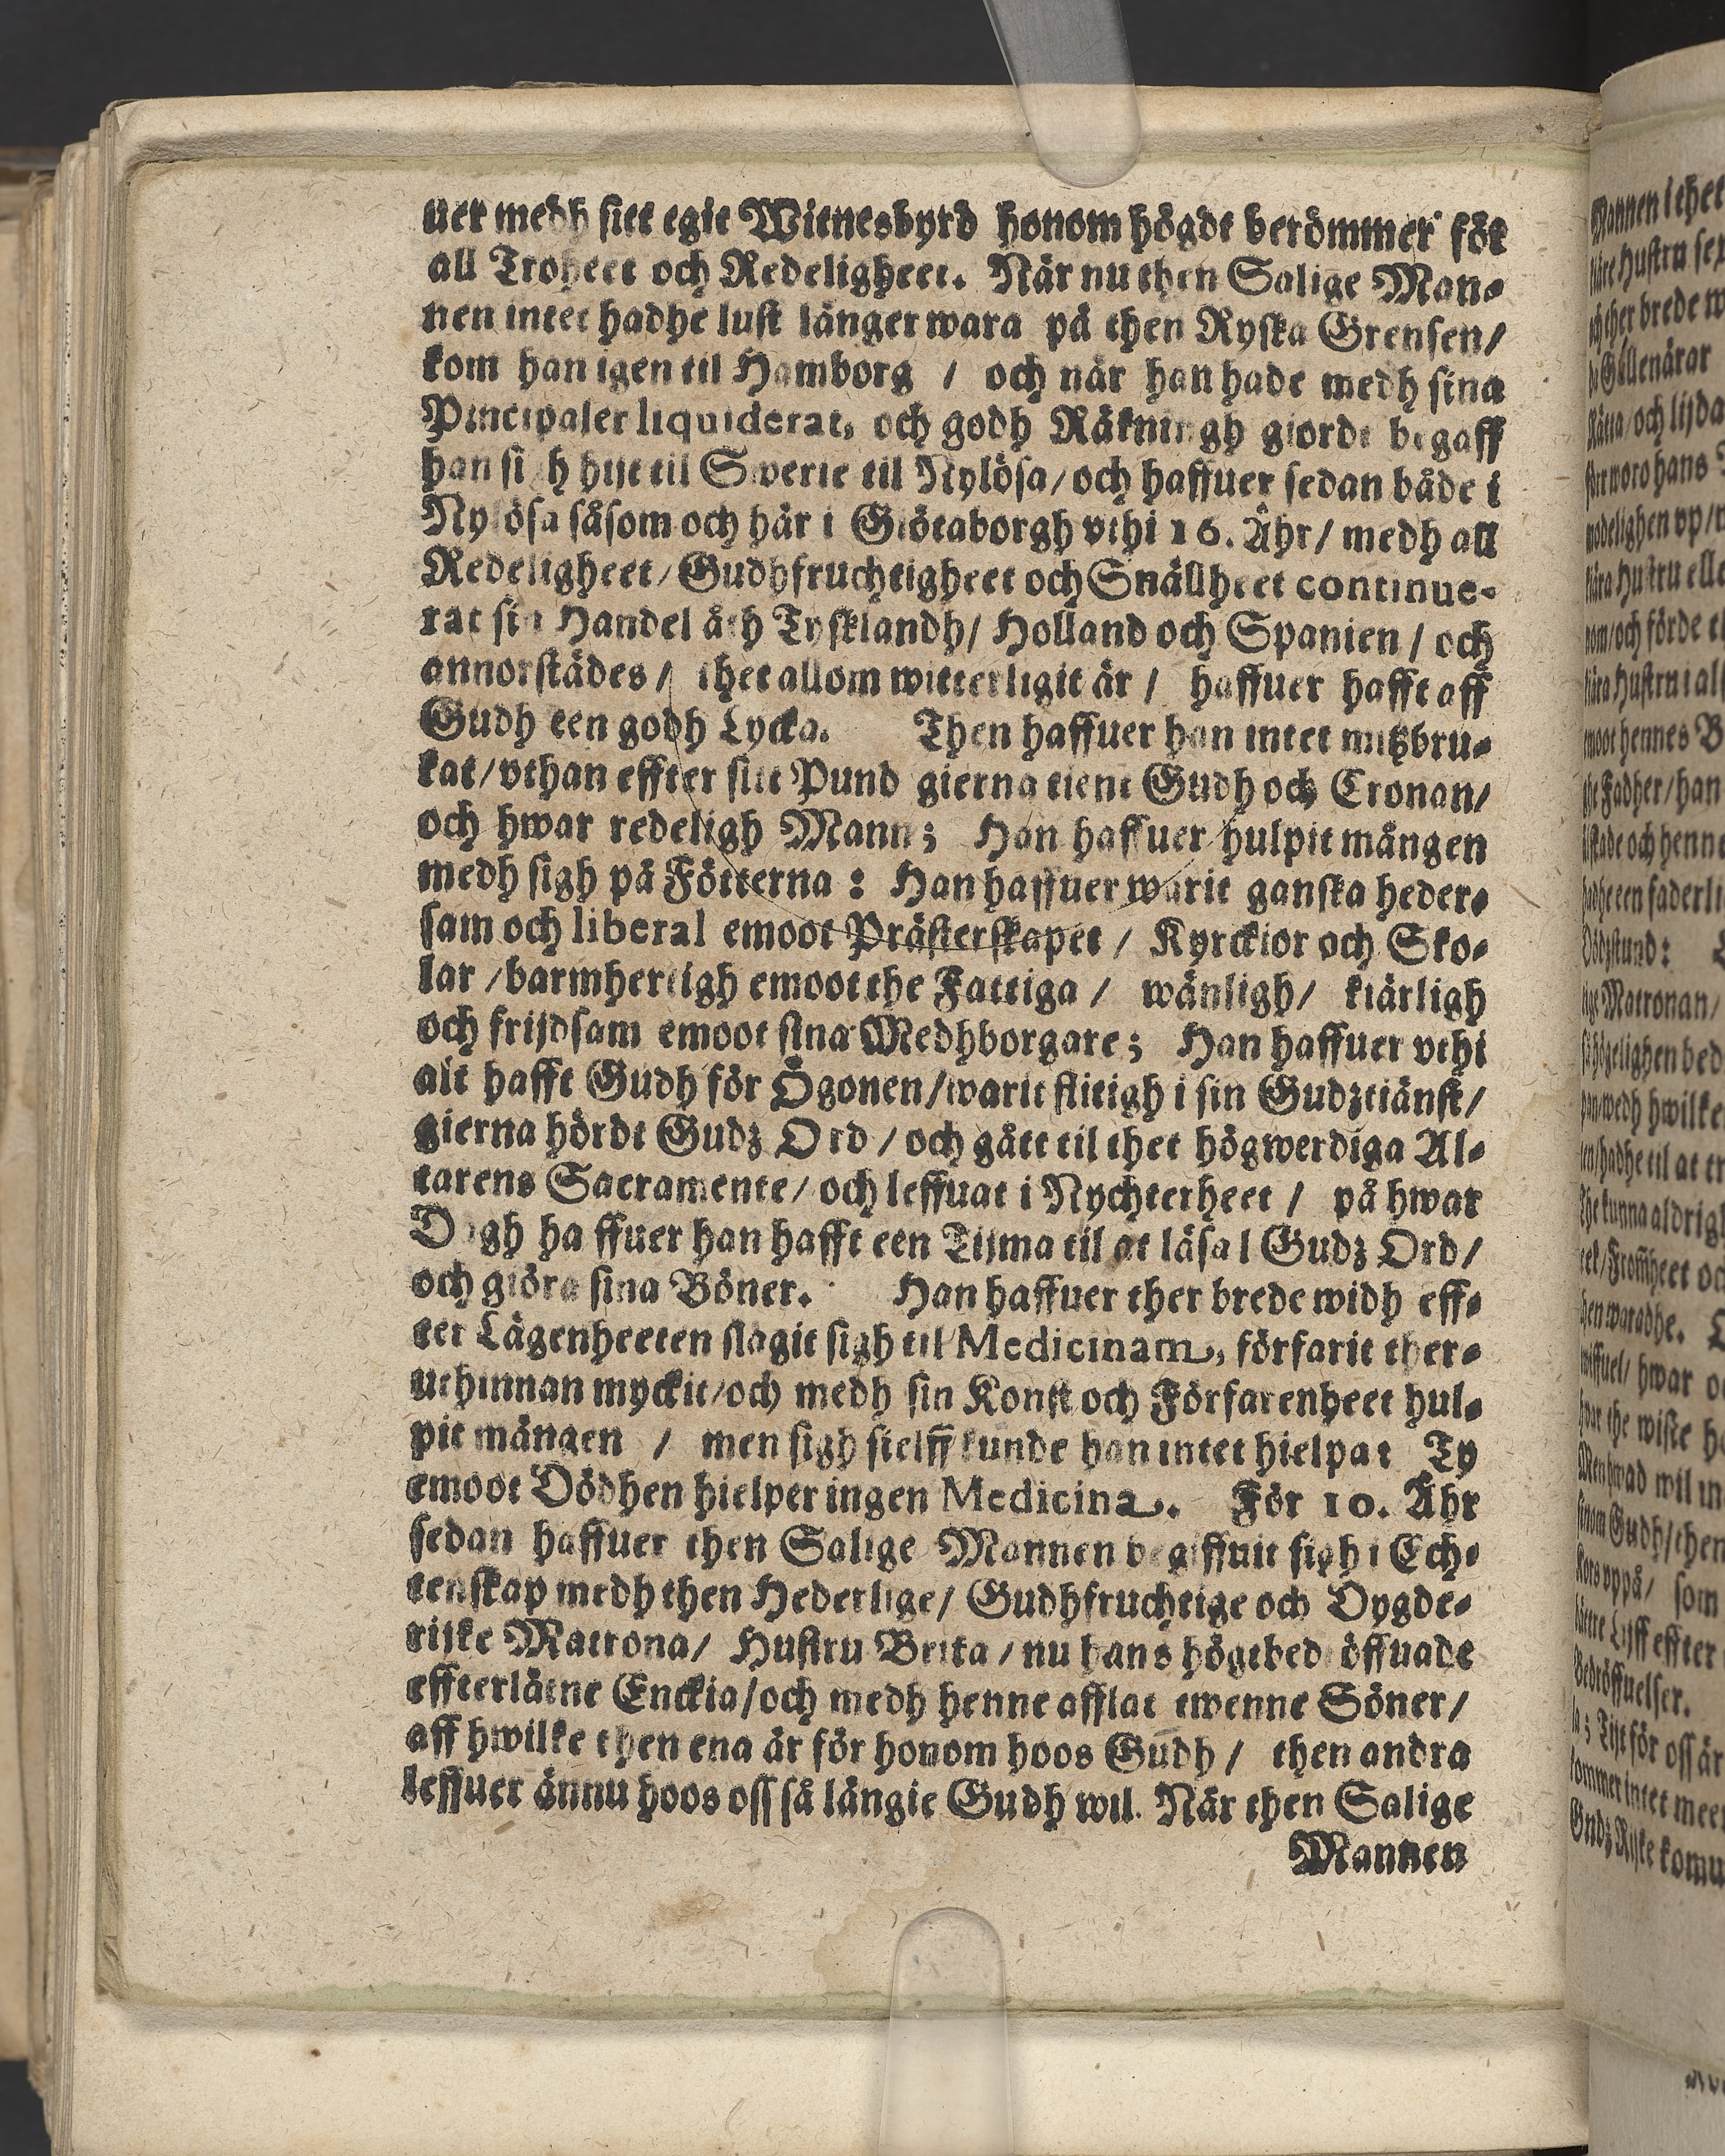 uer medh sitt egit Witnesbyrd honom högdt berömmer för
all Troheet och Redeligheet. När nu then Salige Man-
nen intet hadhe lust länger wara på then Ryska Grensen/
kom han igen til Hamborg / och när han hade medh sina
Pincipaler liquiderat, och godh Räkningh giorde begaff
han sigh hijt til Swerie til Nylösa/och haffuer sedan både i
Nylösa såsom och här i Giötaborgh vthi 16. Åhr/ medh all
Redeligheet/Gudhfruchtigheet och Snällheet continue-
rat sin Handel åth Tysklandh/ Holland och Spanien / och
annorstädes / thet allom witterligit är / haffuer hafft aff
Gudh een godh Lycka. Then haffuer han intet mitzbru-
kat/vthan effter sitt Pund gierna tient Gudh och Cronan/
och hwar redeligh Mann; Han haffuer hulpit mången
medh sigh på Fötterna : Han haffuer warit ganska heder-
sam och liberal emoot Prästerskapet / Kyrckior och Sko-
lar /barmhertigh emoot the Fattiga / wänligh/ kiärligh
och frijdsam emoot sina Medhborgare; Han haffuer vthi
alt hafft Gudh för Ögonen/warit flitigh i sin Gudztiänst/
gierna hördt Gudz Ord / och gått til thet högwerdiga Al-
tarens Sacramente/ och leffuat i Nychterheet / på hwar
Dagh ha ffuer han hafft een Tijma til at läsa l Gudz Ord/
och giöra sina Böner. Han haffuer ther brede widh eff-
ter Lägenheeten slagit sigh til Medicinam, förfarit ther-
uthinnan myckit/och medh sin Konst och Förfarenheet hul-
pit mången / men sigh sielff kunde han intet hielpa: Ty
emoot Dödhen hielper ingen Medicina. För 10. Åhr
sedan haffuer then Salige Mannen begiffuit sigh i Ech-
tenskap medh then Hederlige/ Gudhfruchtige och Dygde-
rijke Matrona/ Hustru Brita / nu hans högtbedröffuade
effterlåtne Enckia/och medh henne afflat twenne Söner/
aff hwilke then ena är för honom hoos Gudh / then andra
leffuer ännu hoos oss så längie Gudh wil. När then Salige
Mannen